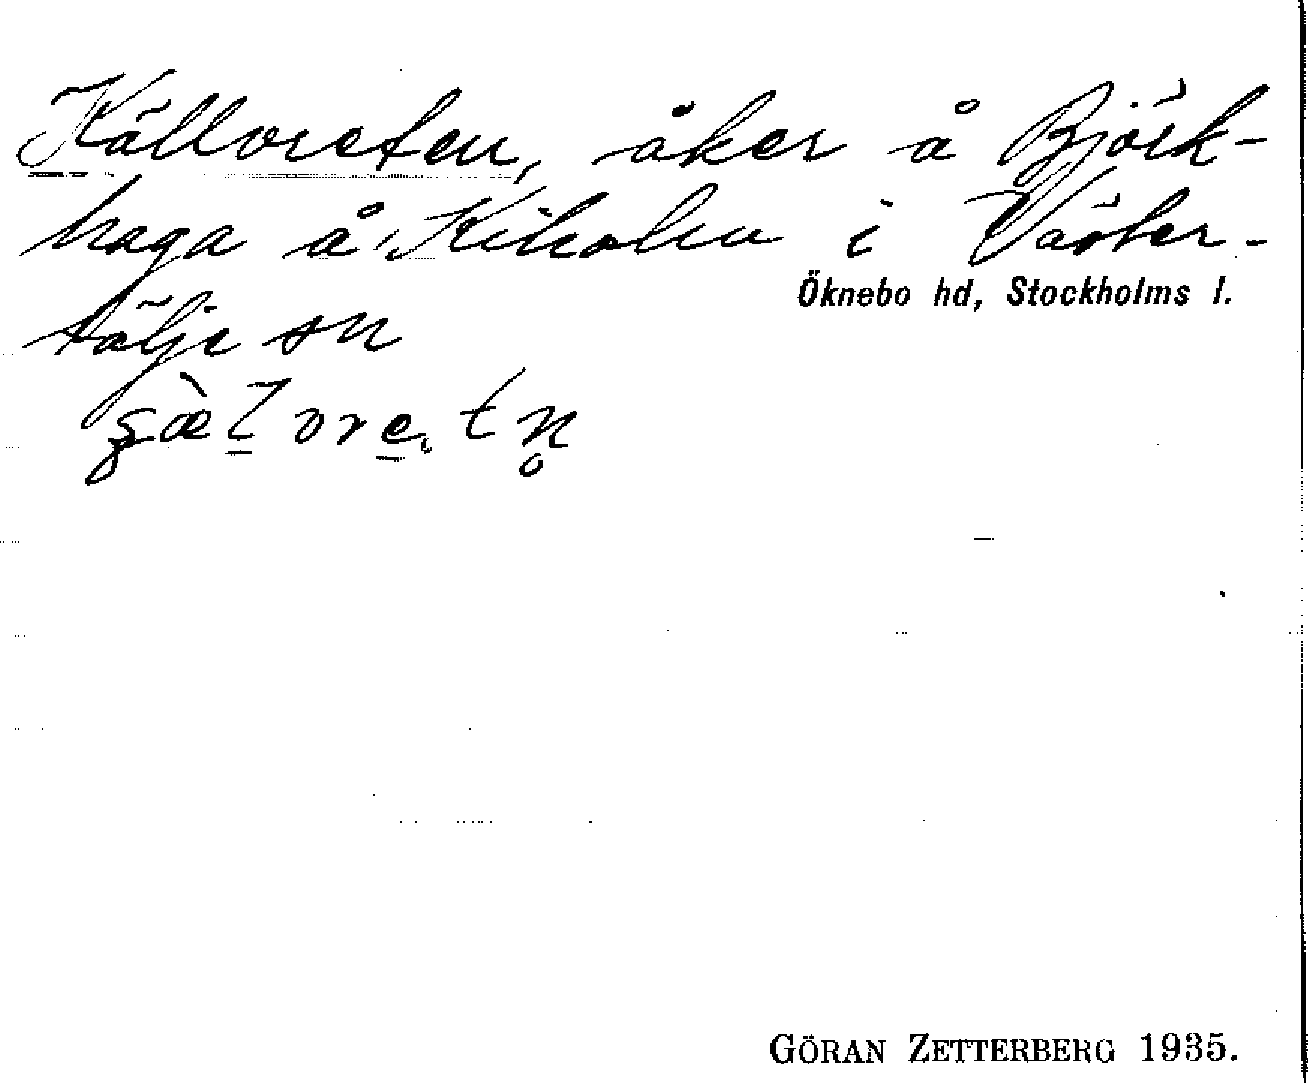 Källvreten, åker å Björk-
haga å Kiholm i Väster-
Öknebo hd, Stockholms l.
tälje sn
GÖRAN ZETTERBERG 1935.